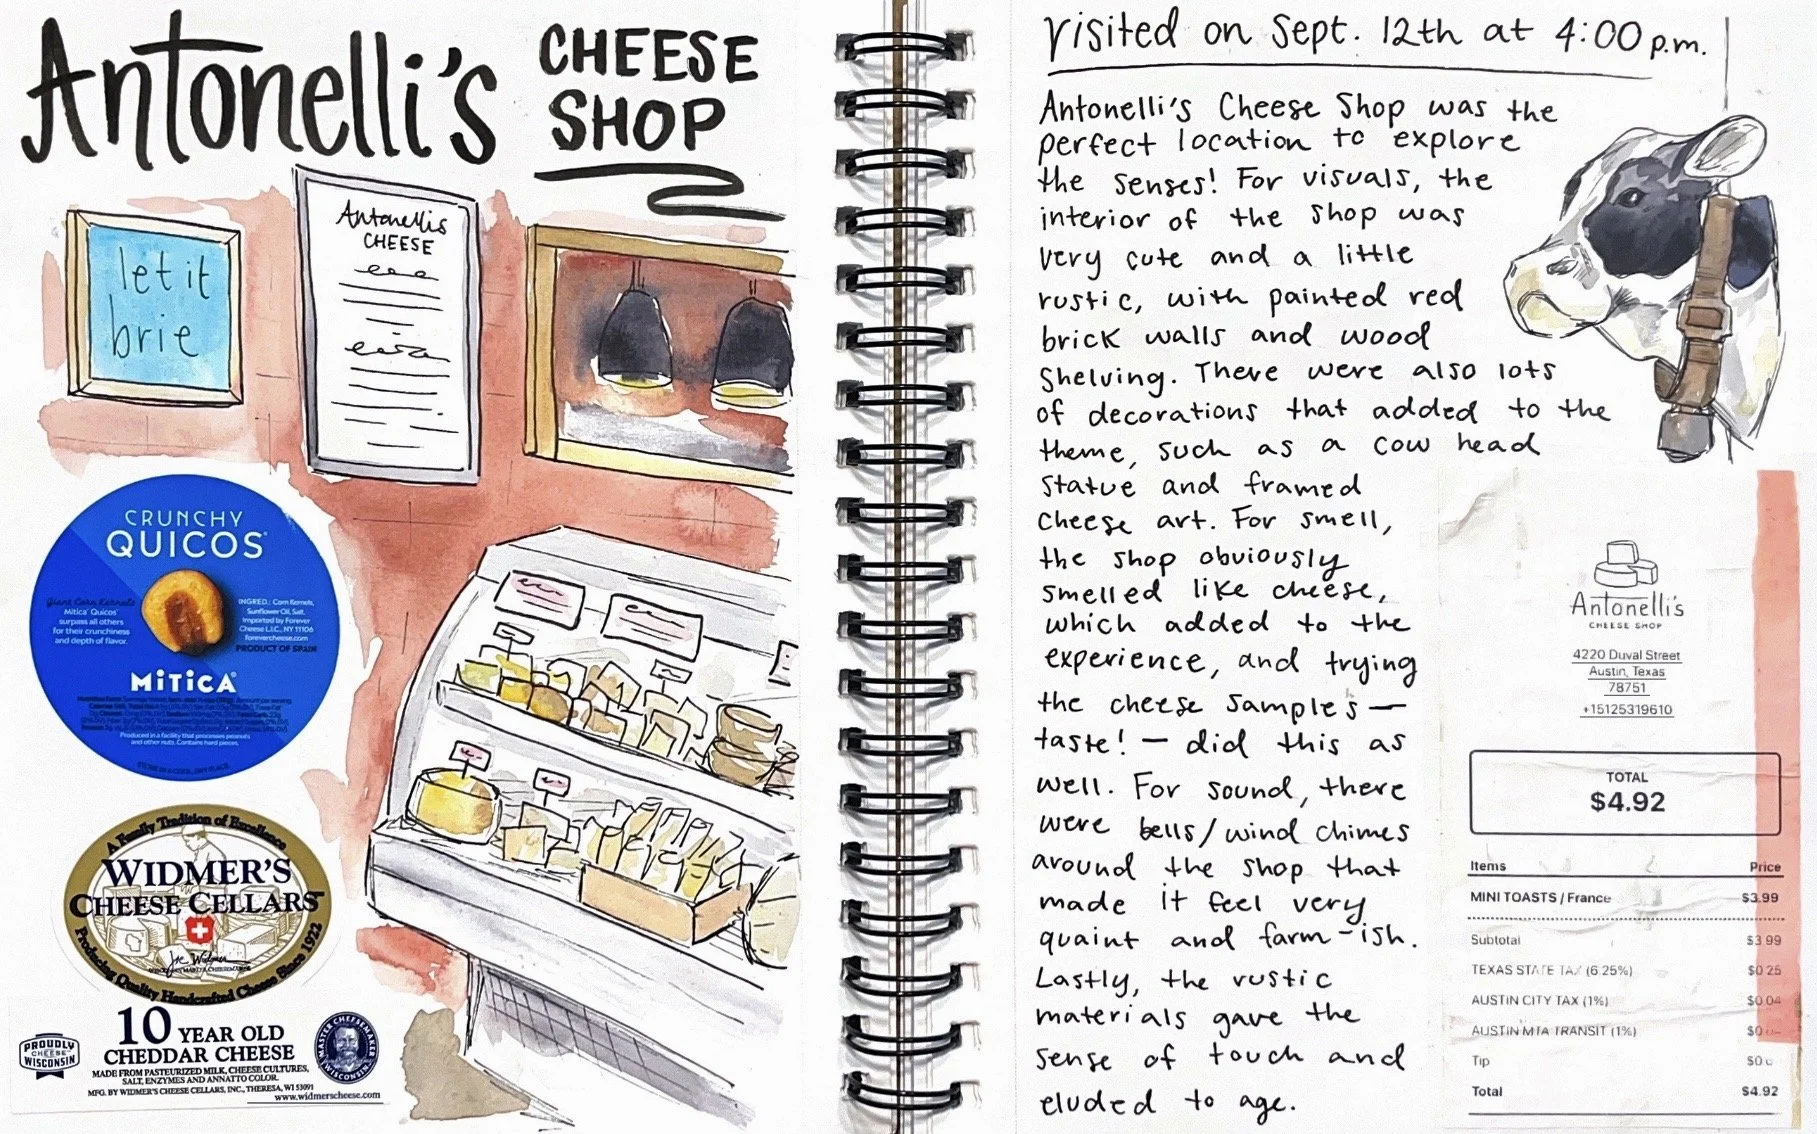 Antonelli's CHEESE SHOP
let it
brie
Antonellis
CHEESE
CRUNCHY
QUICOS
Giant Corn Kernels
Mitica® Quicos®
surpass all others
for their crunchiness
and depth of flavor.
INGRED.: Corn Kernels,
Sunflower Oil, Salt.
Imported by Forever
Cheese L.I.C., NY 11106
forevercheese.com
PRODUCT OF SPAIN
MITICA®
Produced in a facility that processes peanuts
and other nuts. Contains hard pieces.
A Family Tradition of Excellence
WIDMER'S
CHEESE CELLARS
Joe Widmer
Producing Quality Handcrafted Cheese Since 1922
PROUDLY
WISCONSIN
CHEESE
10 YEAR OLD
CHEDDAR CHEESE
MADE FROM PASTEURIZED MILK, CHEESE CULTURES,
SALT, ENZYMES AND ANNATTO COLOR.
MFG. BY WIDMER'S CHEESE CELLARS, INC., THERESA, WI 53091
www.widmerscheese.com
MASTER CHEESEMAKER
WISCONSIN
visited on Sept. 12th at 4:00 p.m.
Antonelli's Cheese Shop was the
perfect location to explore
the senses! For visuals, the
interior of the shop was
very cute and a little
rustic, with painted red
brick walls and wood
shelving. There were also lots
of decorations that added to the
theme, such as a cow head
statue and framed
cheese art. For smell,
the shop obviously
smelled like cheese,
which added to the
experience, and trying
the cheese samples —
taste! — did this as
well. For sound, there
were bells/wind chimes
around the shop that
made it feel very
quaint and farm-ish.
Lastly, the rustic
materials gave the
sense of touch and
eluded to age.
Antonelli's
CHEESE SHOP
4220 Duval Street
Austin, Texas
78751
+15125319610
TOTAL
$4.92
Items Price
MINI TOASTS / France $3.99
Subtotal $3.99
TEXAS STATE TAX (6.25%) $0.25
AUSTIN CITY TAX (1%) $0.04
AUSTIN MTA TRANSIT (1%)
Tip
Total $4.92